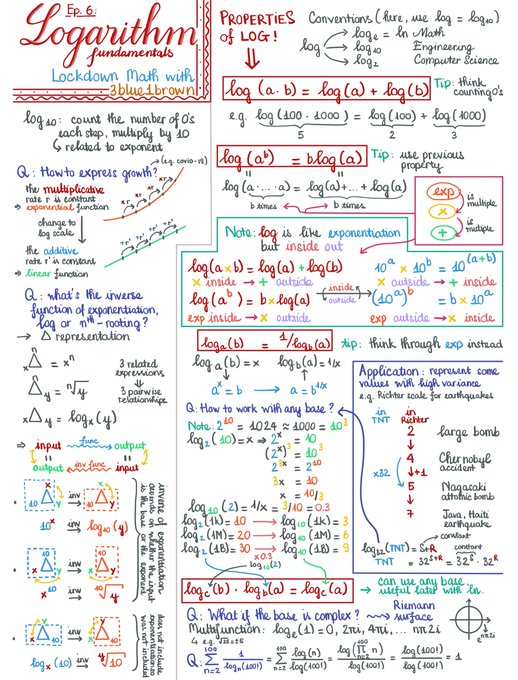 Ep. 6:
Logarithm
fundamentals
Lockdown Math with
3blue1brown
log₁₀: count the number of 0's
each step, multiply by 10
↳ related to exponent
Q: How to express growth?
(e.g. covid-19)
the multiplicative
rate r is constant
→ exponential function
change to
log scale
the additive
rate r' is constant
→ linear function
Q: what's the inverse
function of exponentiation,
log or nᵗʰ-rooting?
→ △ representation
x △ⁿ = xⁿ
△ⁿ y = ⁿ√y
x △ y = logₓ(y)
3 related
expressions
↓
3 pairwise
relationships
input func output
output inv func input
10 △ˣ inv → 10 △ y
10ˣ inv → log₁₀(y)
x △¹⁰ inv → △¹⁰ y
x¹⁰ inv → ¹⁰√y
x △ 10 inv → △ʸ 10
logₓ(10) inv → ʸ√10
inverse of exponentiation
depends on whether the input
is the base
or the exponent
does not include
exponentiation so
was not included
PROPERTIES
of LOG!
Conventions (here, use log = log₁₀)
log → logₑ = ln Math
→ log₁₀ Engineering
→ log₂ Computer Science
log(a·b) = log(a) + log(b)
Tip: think
counting 0's
e.g. log(100·1000) = log(100) + log(1000)
5 2 3
log(aᵇ) = b log(a)
Tip: use previous
property
log(a·...·a) = log(a)+...+log(a)
b times b times
exp
is
multiple
×
is
multiple
+
Note: log is like exponentiation
but inside out
log(a×b) = log(a) + log(b)
× inside → + outside
log(aᵇ) = b × log(a)
exp inside → × outside
inside
outside
10ᵃ × 10ᵇ = 10⁽ᵃ⁺ᵇ⁾
× outside → + inside
(10ᵃ)ᵇ = b × 10ᵃ
exp outside → × inside
logₐ(b) = 1/log_b(a)
tip: think through exp instead
logₐ(b) = x log_b(a) = 1/x
aˣ = b → a = b^(1/x)
Q: How to work with any base?
Note: 2¹⁰ = 1024 ≈ 1000 = 10³
log₂(10) = x ⇒ 2ˣ = 10
(2ˣ)³ = 10³
2³ˣ = 2¹⁰
3x = 10
x = 10/3
log₁₀(2) = 1/x = 3/10 = 0.3
log₂(1k) = 10 → log₁₀(1k) = 3
log₂(1M) = 20 → log₁₀(1M) = 6
log₂(1B) = 30 → log₁₀(1B) = 9
×0.3
log₁₀(2)
log_c(b) · log_b(a) = log_c(a)
→ can use any base
useful later with ln.
Application: represent some
values with high variance
e.g. Richter scale for earthquakes
in
TNT
in
Richter
2 large bomb
4 Chernobyl
accident
x32 +1
5 Nagasaki
atomic bomb
7 Java, Haiti
earthquake
constant
log₃₂(TNT) = S+R
TNT = 32^(S+R) = 32ˢ · 32ᴿ
constant
Q: What if the base is complex? → Riemann
surface
Multifunction: logₑ(1) = 0, 2πi, 4πi, ... nπ2i
↳ e.g. √25 = ±5
eⁿᵖⁱ²ⁱ
Q: Σₙ₌₂¹⁰⁰ 1/logₙ(100!) = Σₙ₌₂¹⁰⁰ log(n)/log(100!) = log(∏ₙ₌₂¹⁰⁰ n)/log(100!) = log(100!)/log(100!) = 1